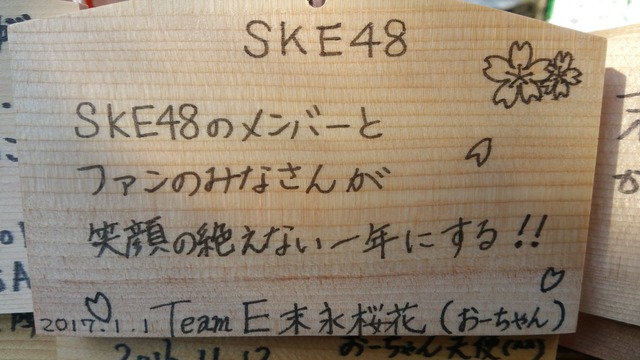 SKE48
SKE48のメンバーと
ファンのみなさんが
笑顔の絶えない一年にする!!
2017.1.1 Team E 末永桜花(おーちゃん)